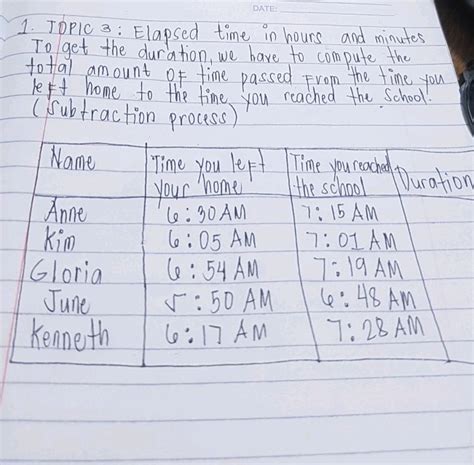 DATE:
1. TOPIC 3: Elapsed time in hours and minutes
To get the duration, we have to compute the
total amount OF time passed From the time you
left home to the time you reached the School.
(Subtraction process)
Name Time you left your home Time you reached the school Duration
Anne 6:30 AM 7:15 AM
Kim 6:05 AM 7:01 AM
Gloria 6:54 AM 7:19 AM
June 5:50 AM 6:48 AM
Kenneth 6:17 AM 7:28 AM